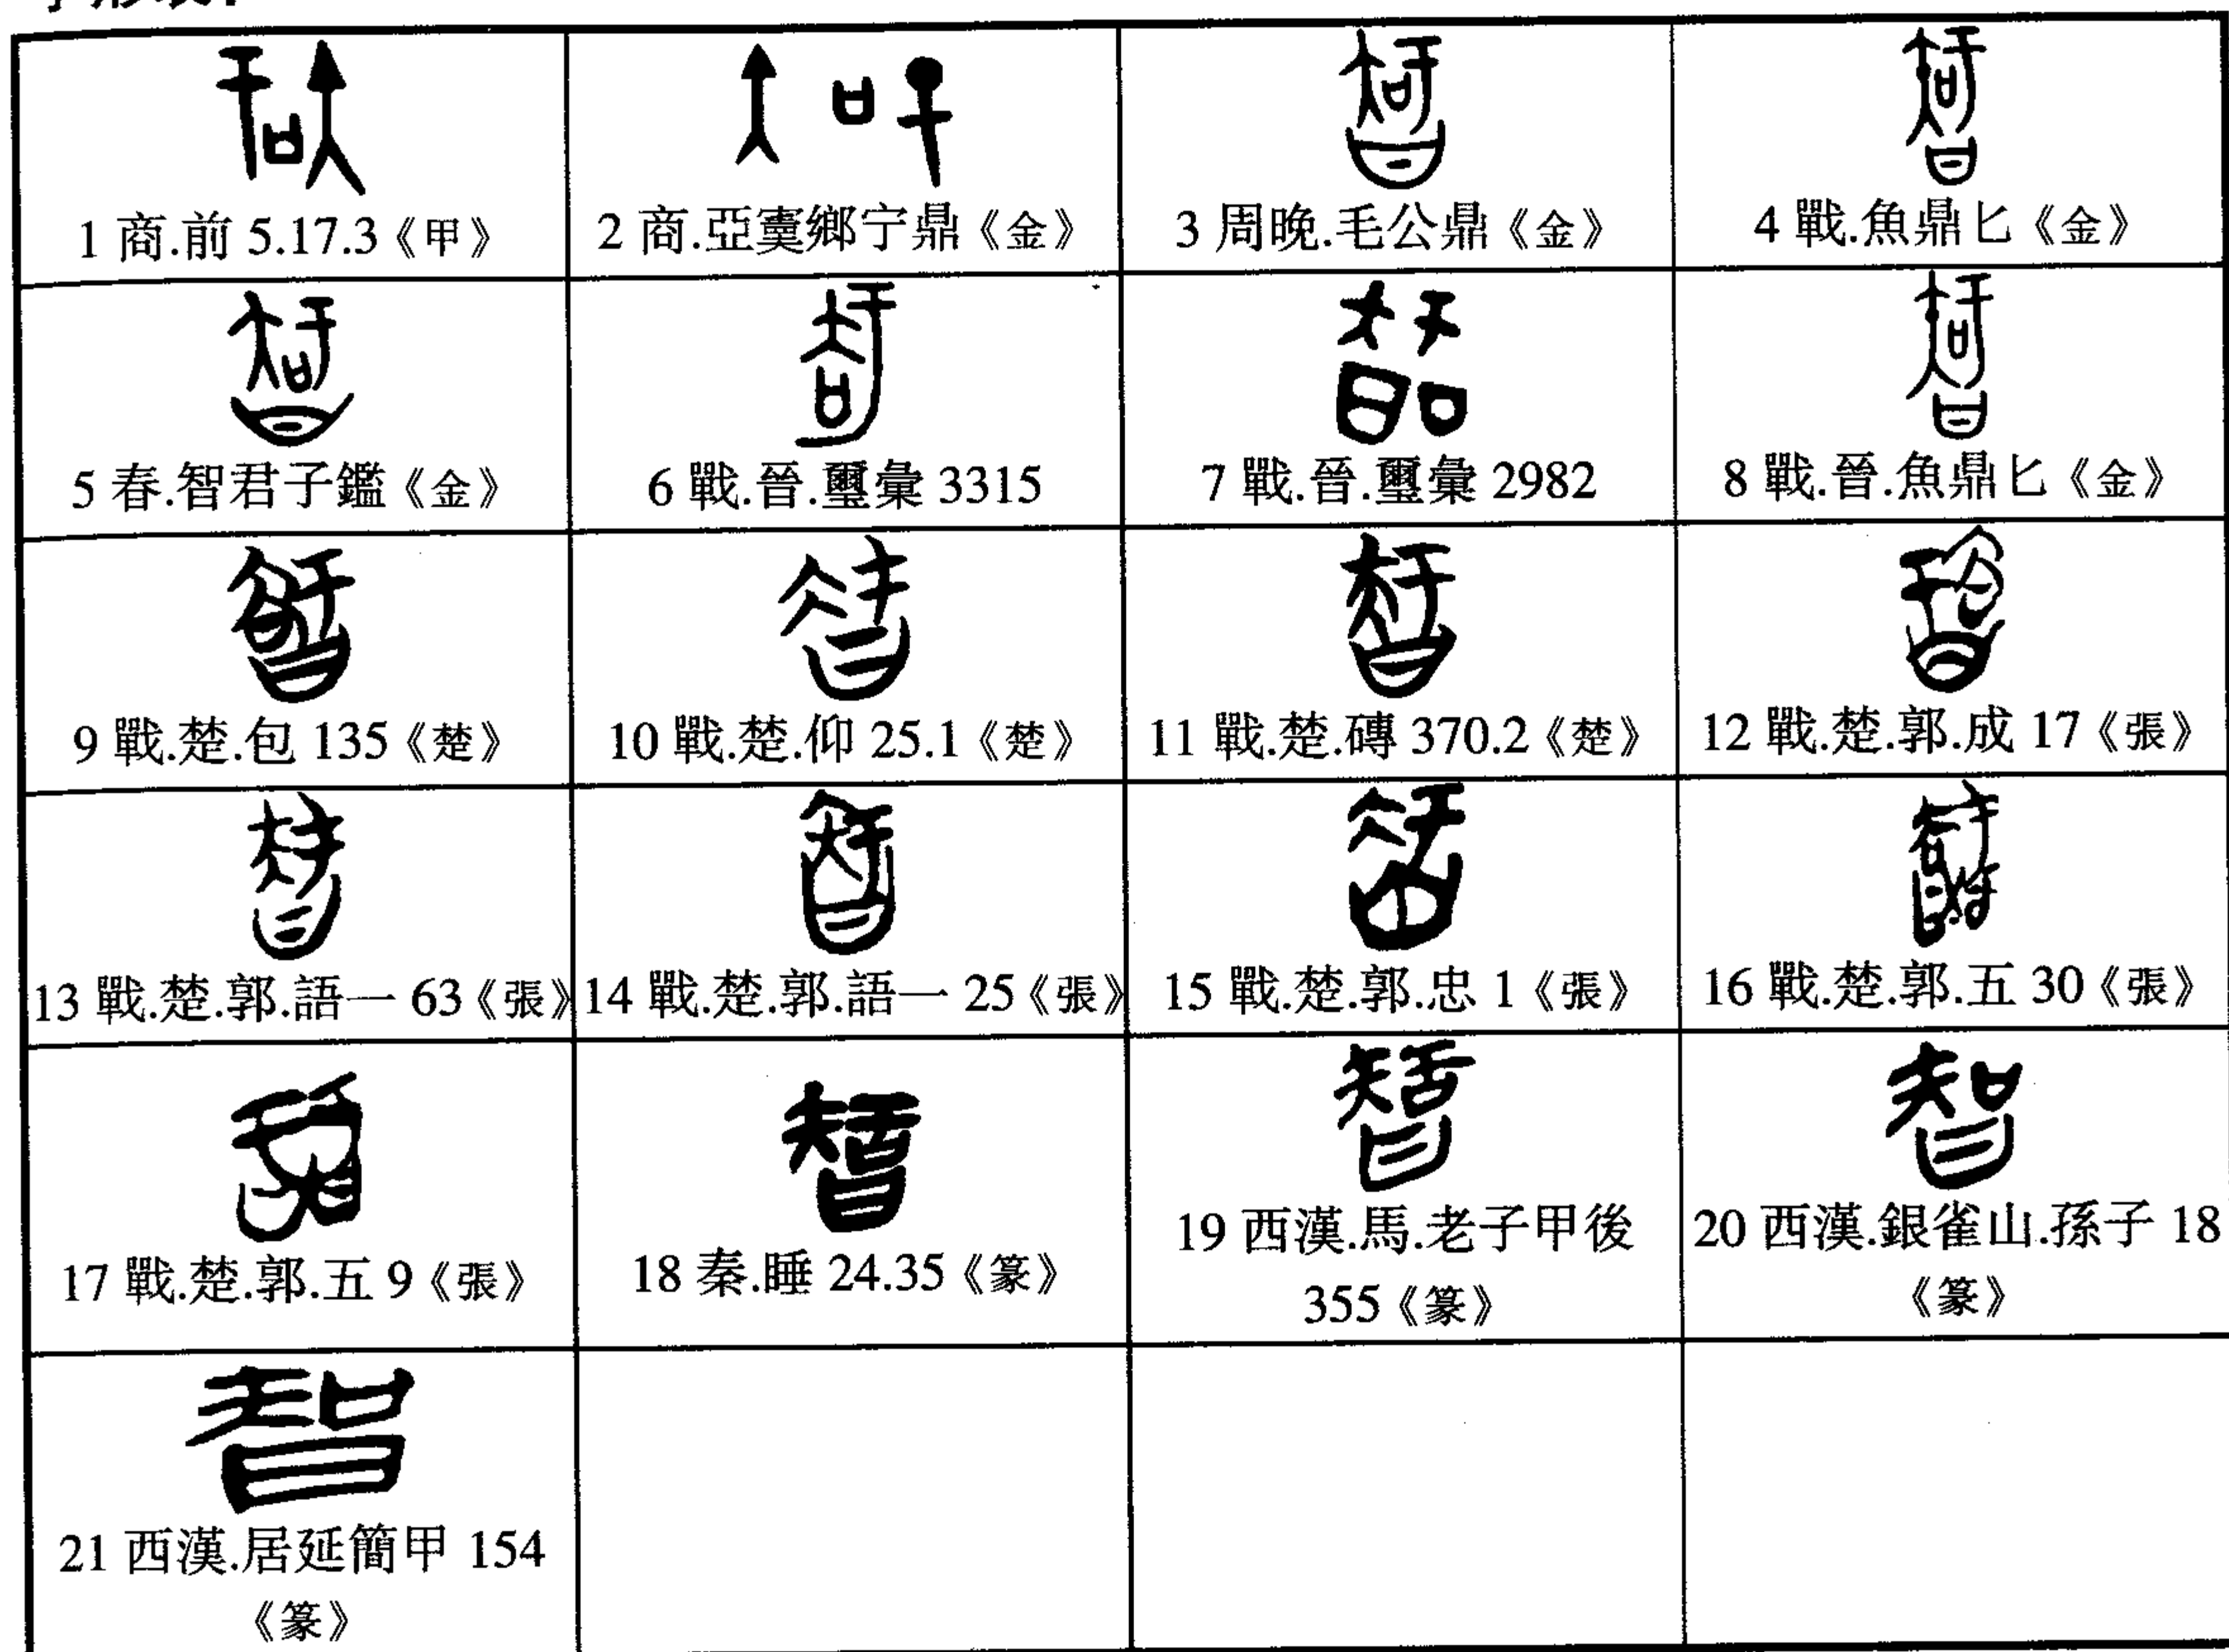 1 商.前 5.17.3《甲》
2 商.亞寠鄉宁鼎《金》
3 周晚.毛公鼎《金》
4 戰.魚鼎匕《金》
5 春.智君子鑑《金》
6 戰.晉.璽彙 3315
7 戰.晉.璽彙 2982
8 戰.晉.魚鼎匕《金》
9 戰.楚.包 135《楚》
10 戰.楚.仰 25.1《楚》
11 戰.楚.磚 370.2《楚》
12 戰.楚.郭.成 17《張》
13 戰.楚.郭.語一 63《張》
14 戰.楚.郭.語一 25《張》
15 戰.楚.郭.忠 1《張》
16 戰.楚.郭.五 30《張》
17 戰.楚.郭.五 9《張》
18 秦.睡 24.35《篆》
19 西漢.馬.老子甲後
355《篆》
20 西漢.銀雀山.孫子 18
《篆》
21 西漢.居延簡甲 154
《篆》